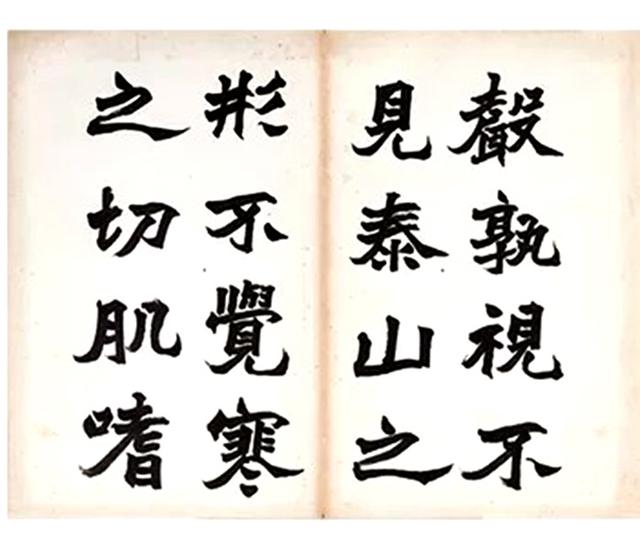 聲孰視不
見泰山之
形不覺寒
之切肌嗜